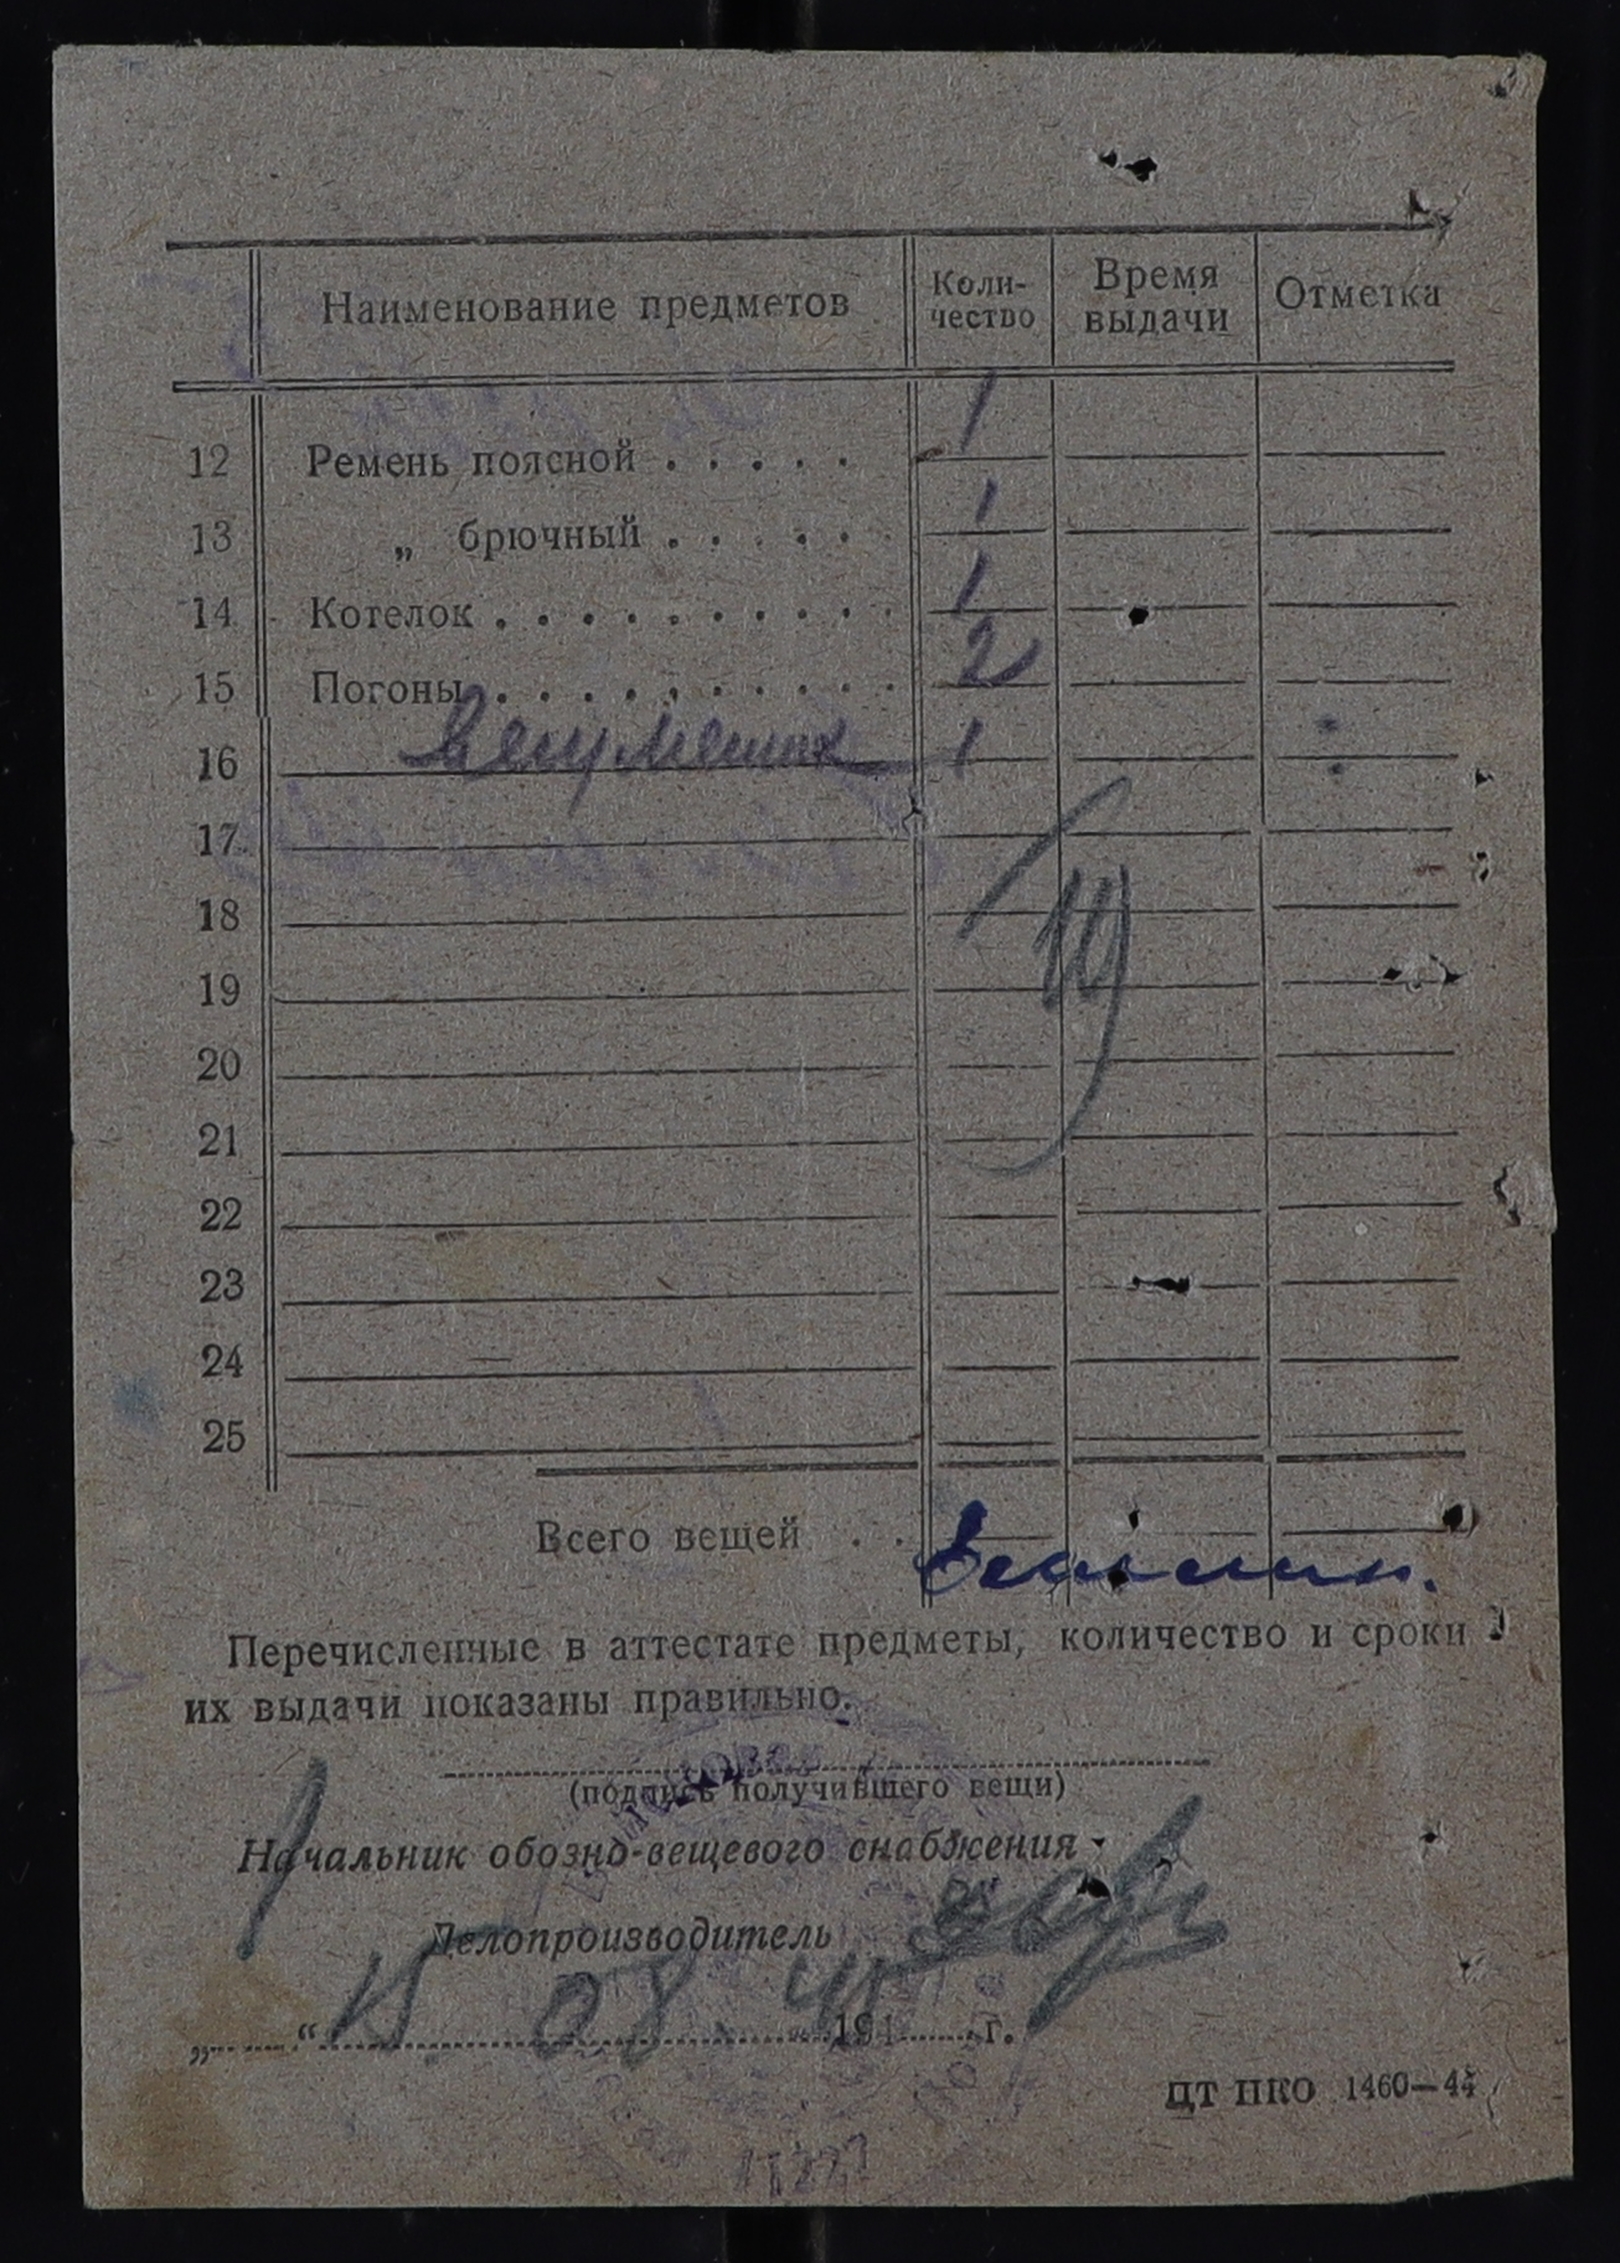 Наименование предметов Коли-чество Время выдачи Отметка
12 Ремень поясной . . . . . 1
13 „ брючный . . . . . 1
14 Котелок . . . . . . . . . . 1
15 Погоны . . . . . . . . . . 2
16 вещ мешок 1
17
18
19
20
21
22
23
24
25
Всего вещей . .
Перечисленные в аттестате предметы, количество и сроки
их выдачи показаны правильно.
(подпись получившего вещи)
Начальник обозно-вещевого снабжения
Делопроизводитель
„ “ 15 08 45 194 г.
ЦТ НКО 1460—44